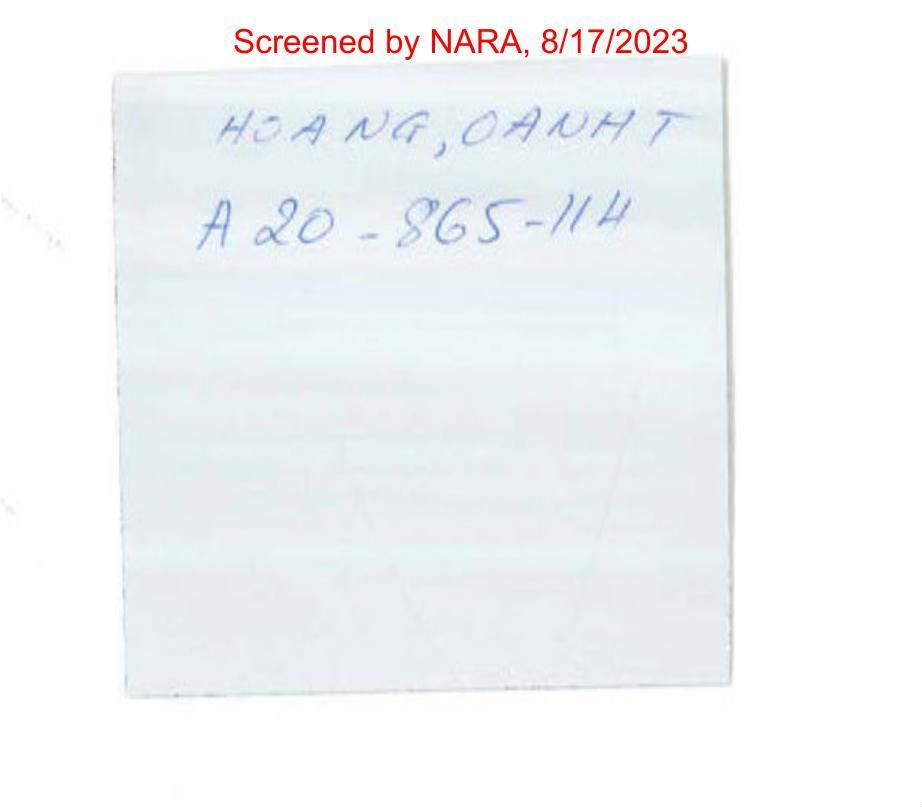 Screened by NARA, 8/17/2023
HOANG, OANH T
A 20 - 865-114